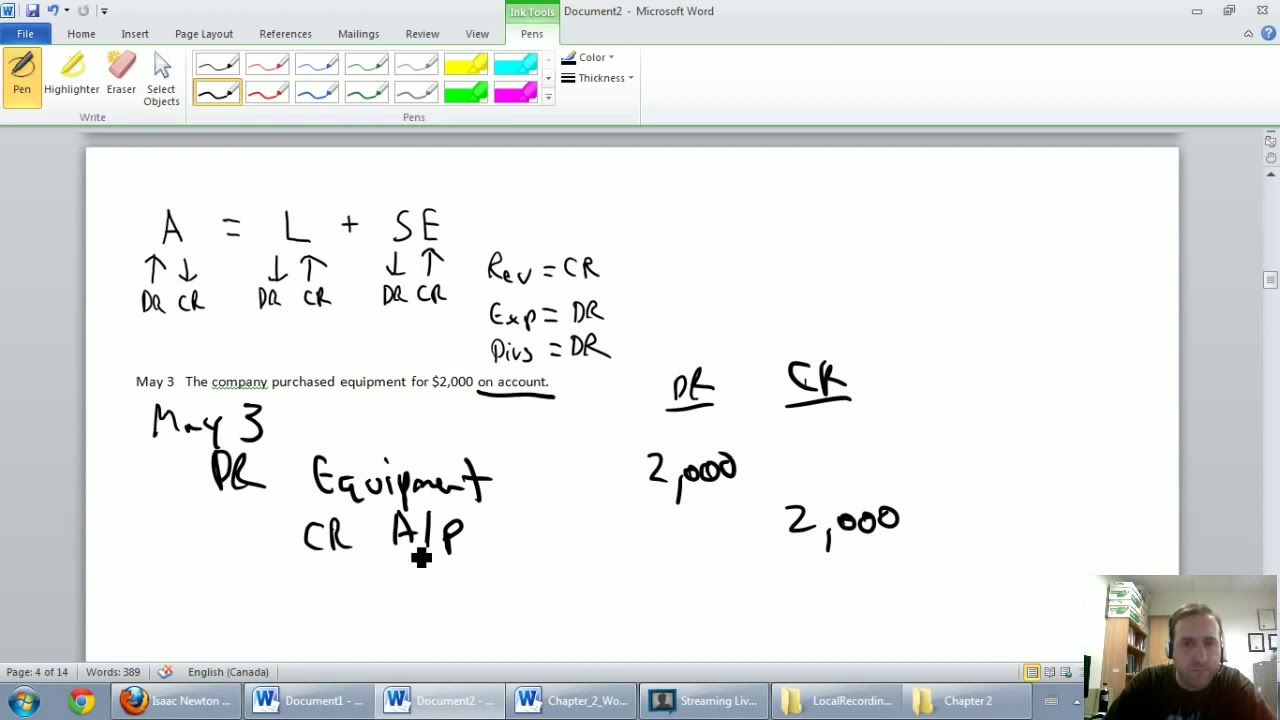 Ink Tools
Document2 - Microsoft Word
File Home Insert Page Layout References Mailings Review View Pens
Pen Highlighter Eraser Select Objects
Color
Thickness
Write
Pens
A = L + SE
DR CR DR CR DR CR
Rev = CR
Exp = DR
Divs = DR
May 3 The company purchased equipment for $2,000 on account.
DR CR
May 3
DR Equipment 2,000
CR A/P 2,000
Page: 4 of 14 Words: 389 English (Canada)
Isaac Newton ... Document1 - ... Document2 - ... Chapter_2_Wo... Streaming Liv... LocalRecording Chapter 2